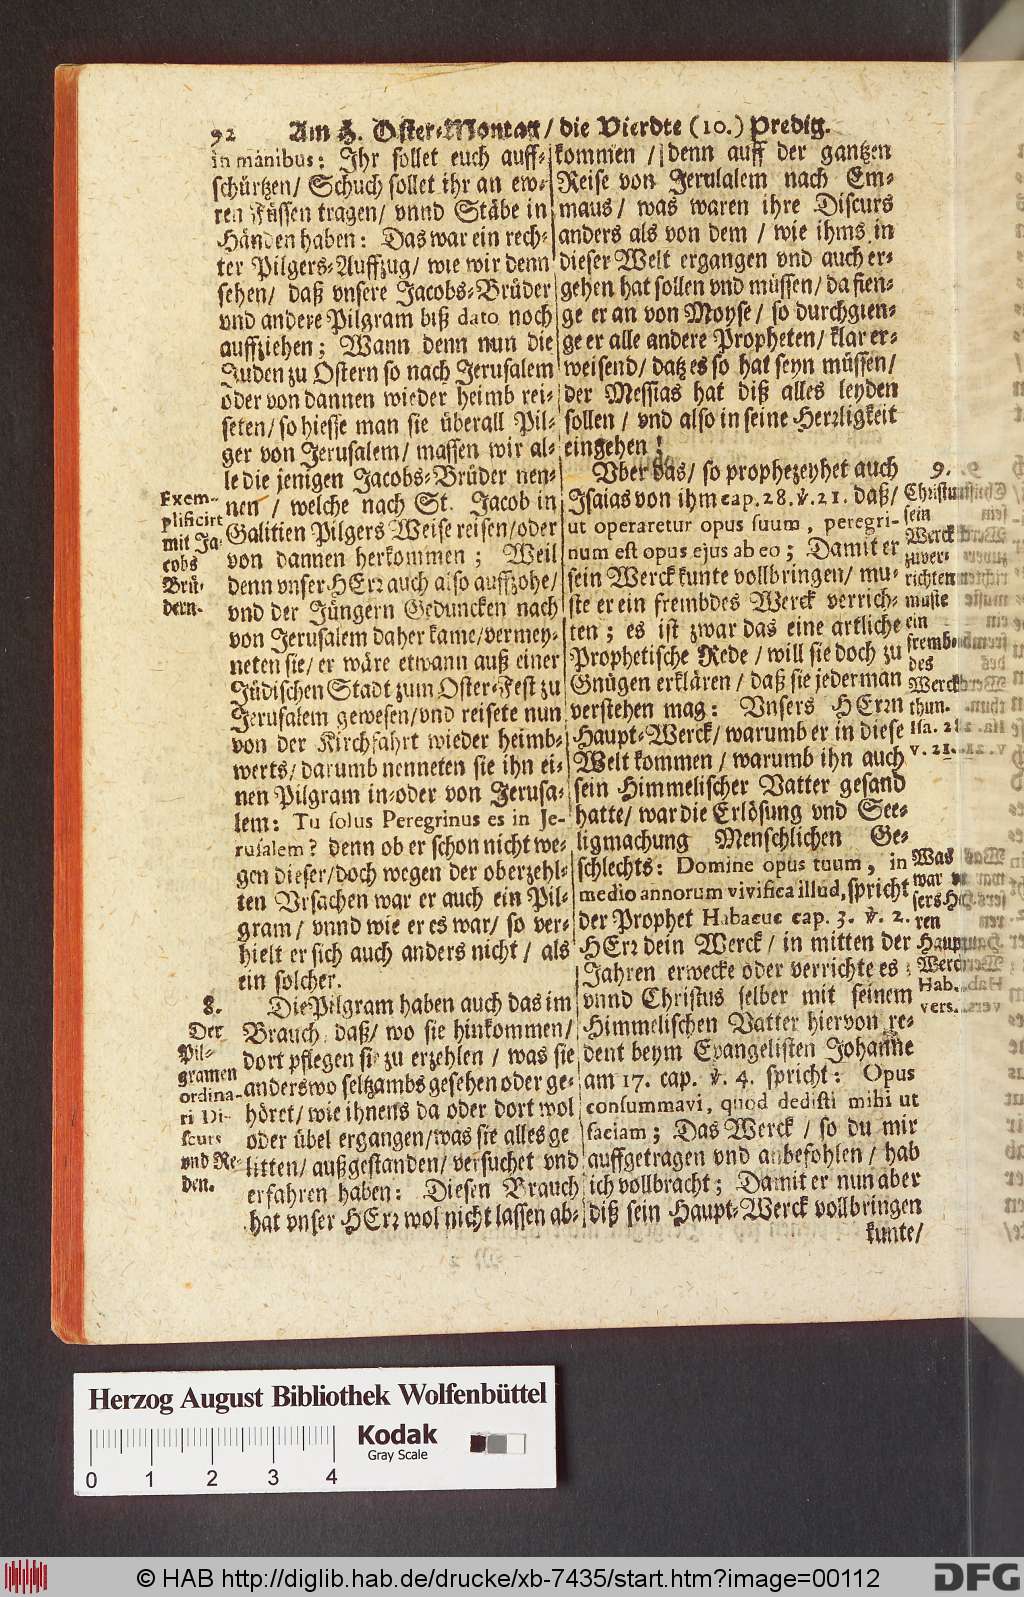 92 Am H. Oster-Montag / die Vierdte (10.) Predig.
in manibus: Ihr sollet euch auff-
schürtzen/ Schuch sollet ihr an ew-
ren Füssen tragen/ vnnd Stäbe in
Händen haben: Das war ein rech-
ter Pilgers-Auffzug/ wie wir denn
sehen/ daß vnsere Jacobs-Brüder
vnd andere Pilgram biß dato noch
auffziehen; Wann denn nun die
Juden zu Ostern so nach Jerusalem
oder von dannen wieder heimb rei-
seten/ so hiesse man sie überall Pil-
ger von Jerusalem/ massen wir al-
le die jenigen Jacobs-Brüder nen-
nen / welche nach St. Jacob in
Galitien Pilgers Weise reisen/oder
von dannen herkommen; Weil
denn vnser HErr auch also auffzohe/
vnd der Jüngern Geduncken nach
von Jerusalem daher kame/vermey-
neten sie/ er wäre etwann auß einer
Jüdischen Stadt zum Oster-Fest zu
Jerusalem gewesen/vnd reisete nun
von der Kirchfahrt wieder heimb-
werts/ darumb nenneten sie ihn ei-
nen Pilgram in-oder von Jerusa-
lem: Tu solus Peregrinus es in Je-
rusalem? denn ob er schon nicht we-
gen dieser/doch wegen der oberzehl-
ten Vrsachen war er auch ein Pil-
gram/ vnnd wie er es war/ so ver-
hielt er sich auch anders nicht / als
ein solcher.
Die Pilgram haben auch das im
Brauch daß/ wo sie hinkommen/
dort pflegen sie zu erzehlen / was sie
anderswo seltzambs gesehen oder ge-
höret/ wie ihnens da oder dort wol
oder übel ergangen/was sie alles ge
litten/ außgestanden/ versuchet vnd
erfahren haben: Diesen Brauch
hat vnser HErr wol nicht lassen ab-
Exem-
plificirt
mit Ja-
cobs
Brü-
dern.
8.
Der
Pil-
gramen
ordina-
ri Di-
scurs
vnd Re-
den.
kommen / denn auff der gantzen
Reise von Jerusalem nach Em-
maus/ was waren ihre Discurs
anders als von dem / wie ihms in
dieser Welt ergangen vnd auch er-
gehen hat sollen vnd müssen/ da fien-
ge er an von Moyse/ so durchgien-
ge er alle andere Propheten/ klar er-
weisend/ datz es so hat seyn müssen/
der Messias hat diß alles leyden
sollen / vnd also in seine Herrligkeit
eingehen!
Vber das/ so prophezeyhet auch
Isaias von ihm cap. 28. v. 21. daß/
ut operaretur opus suum, peregri-
num est opus ejus ab eo; Damit er
sein Werck kunte vollbringen/ mu-
ste er ein frembdes Werck verrich-
ten; es ist zwar das eine artliche
Prophetische Rede / will sie doch zu
Gnügen erklären/ daß sie jederman
verstehen mag: Vnsers HErrn
Haupt-Werck/ warumb er in diese
Welt kommen / warumb ihn auch
sein Himmelischer Vatter gesand
hatte/ war die Erlösung vnd See-
ligmachung Menschlichen Ge-
schlechts: Domine opus tuum, in
medio annorum vivifica illud, spricht
der Prophet Habacuc cap. 3. v. 2.
HErr dein Werck / in mitten der
Jahren erwecke oder verrichte es;
vnnd Christus selber mit seinem
Himmelischen Vatter hiervon re-
dent beym Evangelisten Johanne
am 17. cap. v. 4. spricht: Opus
consummavi, quod dedisti mihi ut
faciam; Das Werck / so du mir
auffgetragen vnd anbefohlen / hab
ich vollbracht; Damit er nun aber
diß sein Haupt-Werck vollbringen
kunte/
9.
Christus
sein
Werck
zuver-
richten
muste
ein
fremb-
des
Werck
thun.
Isa. 28.
v. 21.
Was
war
Haupt
Werck
Hab.
vers.
Herzog August Bibliothek Wolfenbüttel
Kodak
Gray Scale
0 1 2 3 4
© HAB http://diglib.hab.de/drucke/xb-7435/start.htm?image=00112
DFG